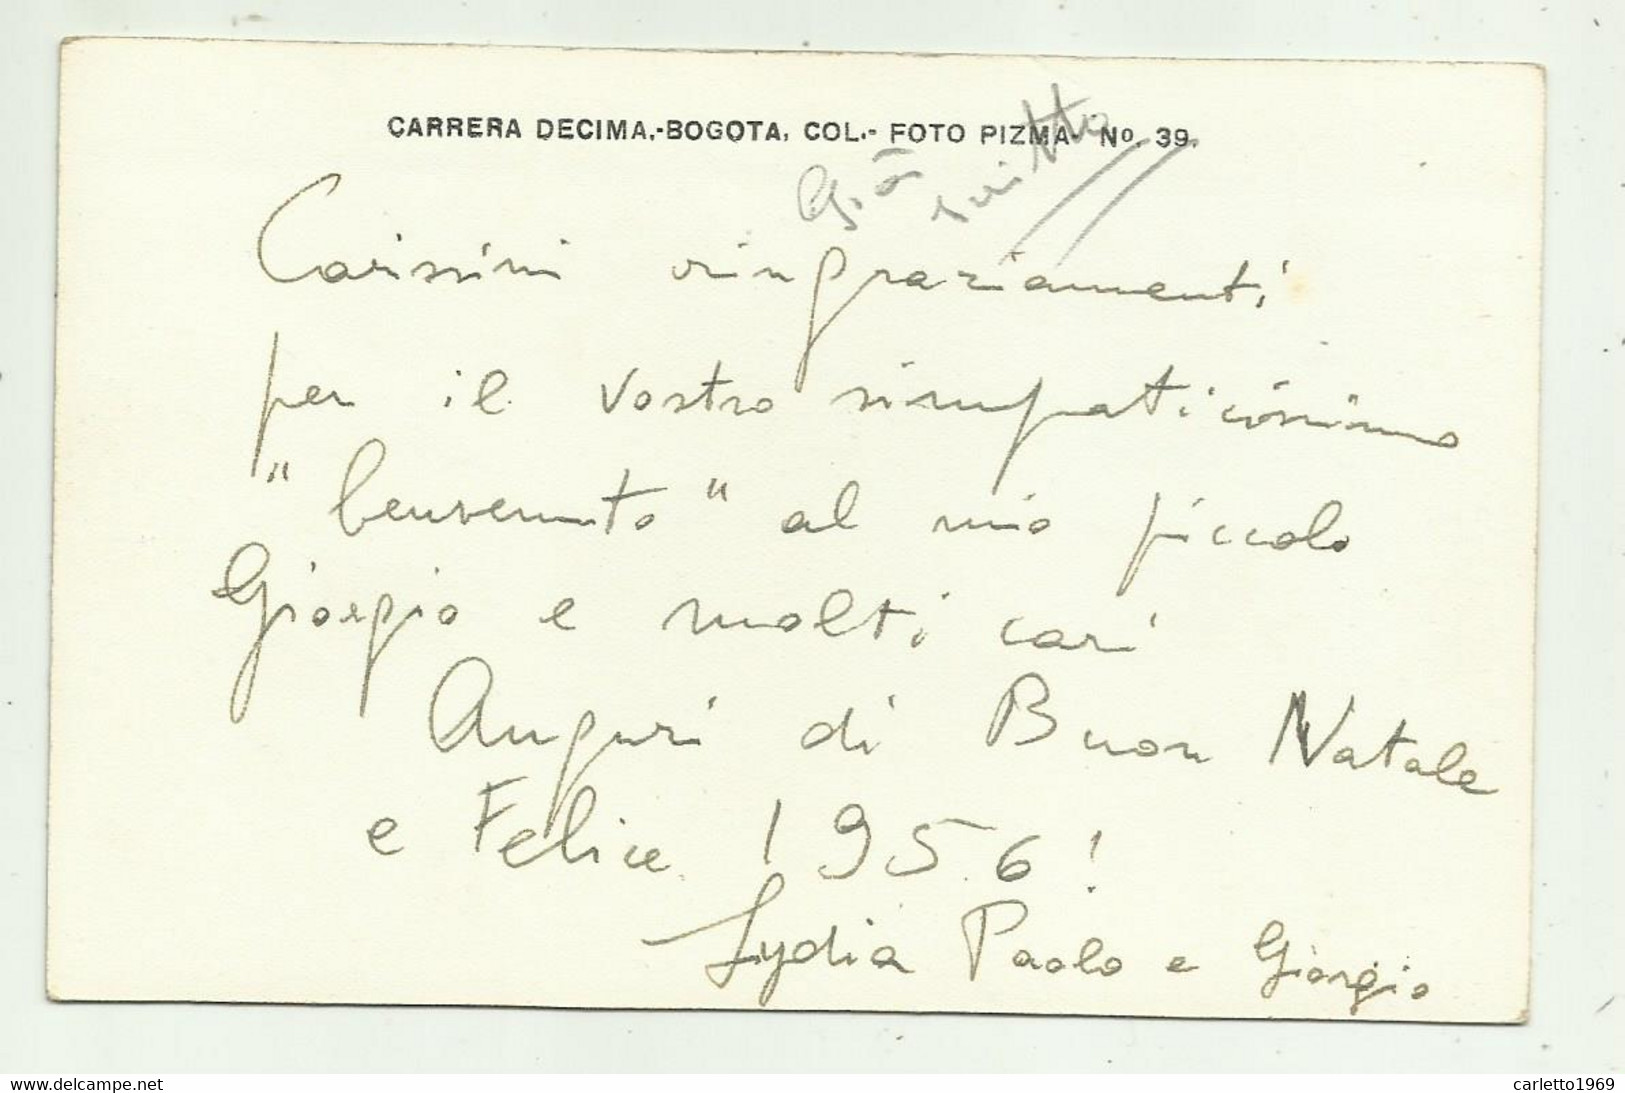 CARRERA DECIMA.-BOGOTA, COL.- FOTO PIZMA- Nº. 39.
Già scritto
Carissimi ringraziamenti
per il vostro simpaticissimo
"benvenuto" al mio piccolo
Giorgio e molti cari
Auguri di Buon Natale
e Felice 1956!
Lydia Paolo e Giorgio
www.delcampe.net
carletto1969